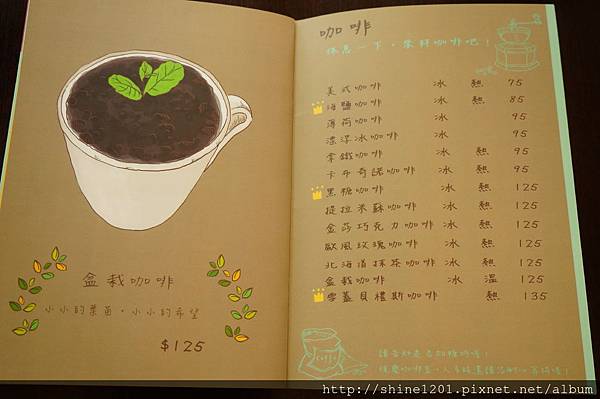 盆栽咖啡
小小的葉苗，小小的希望
$125
咖啡
休息一下，來杯咖啡吧！
美式咖啡 冰 熱 75
海鹽咖啡 冰 熱 85
薄荷咖啡 冰 95
漂浮冰咖啡 冰 95
拿鐵咖啡 冰 熱 95
卡布奇諾咖啡 冰 熱 95
黑糖咖啡 冰 熱 125
提拉米蘇咖啡 冰 熱 125
金莎巧克力咖啡 冰 熱 125
歐風玫瑰咖啡 冰 熱 125
北海道抹茶咖啡 冰 熱 125
盆栽咖啡 冰 溫 125
雪蓋貝禮斯咖啡 熱 135
coffee
請告知是否加糖奶唷！
http://shine1201.pixnet.net/album